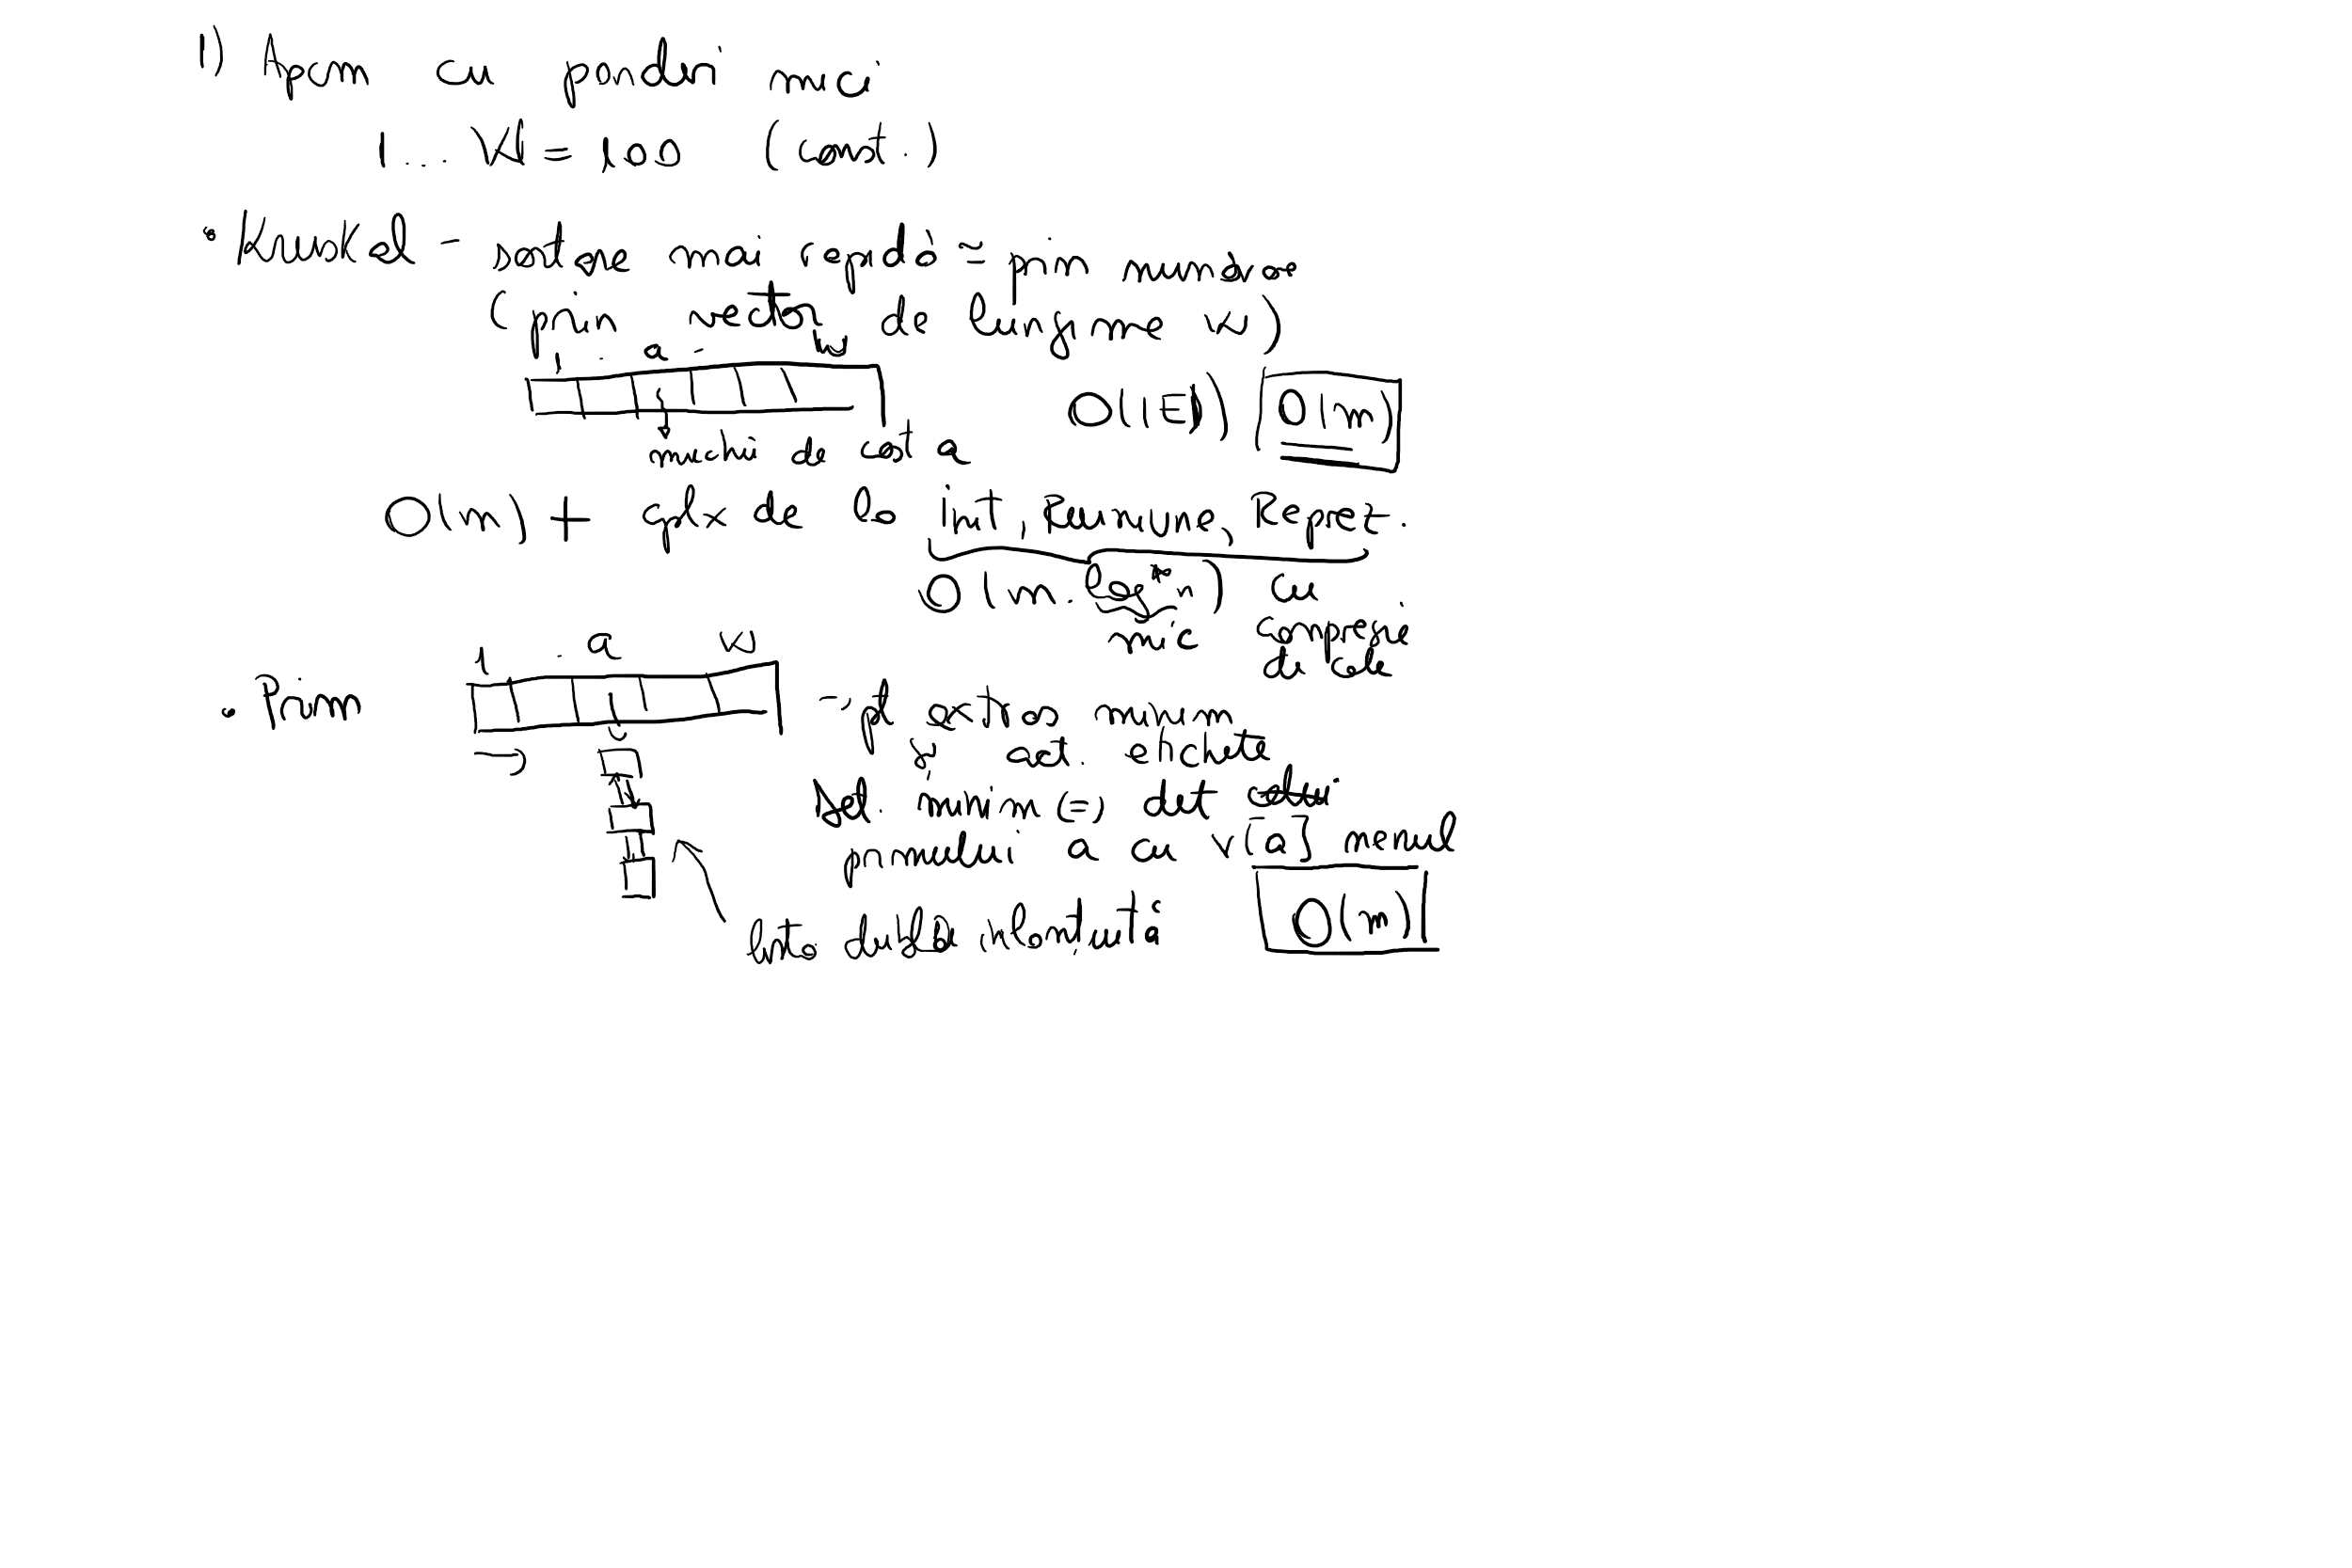 1) Apcm cu ponderi mici
1... W = 100 (const.)
• Kruskal - sortare mai rapidă = prin numărare
(prin vector de lungime W)
1 . a . W
O(|E|) O(m)
muchii de cost a
O(m) + cplx de la Init, Reuniune, Reprez.
O(m. log* n) cu
mic compresie
de cale
1 . a W
• Prim → pt extras minim
și act. etichete
Det. minim (=) det
primului a cu v[a] nenul
O(m)
lista dublă înlănțuită